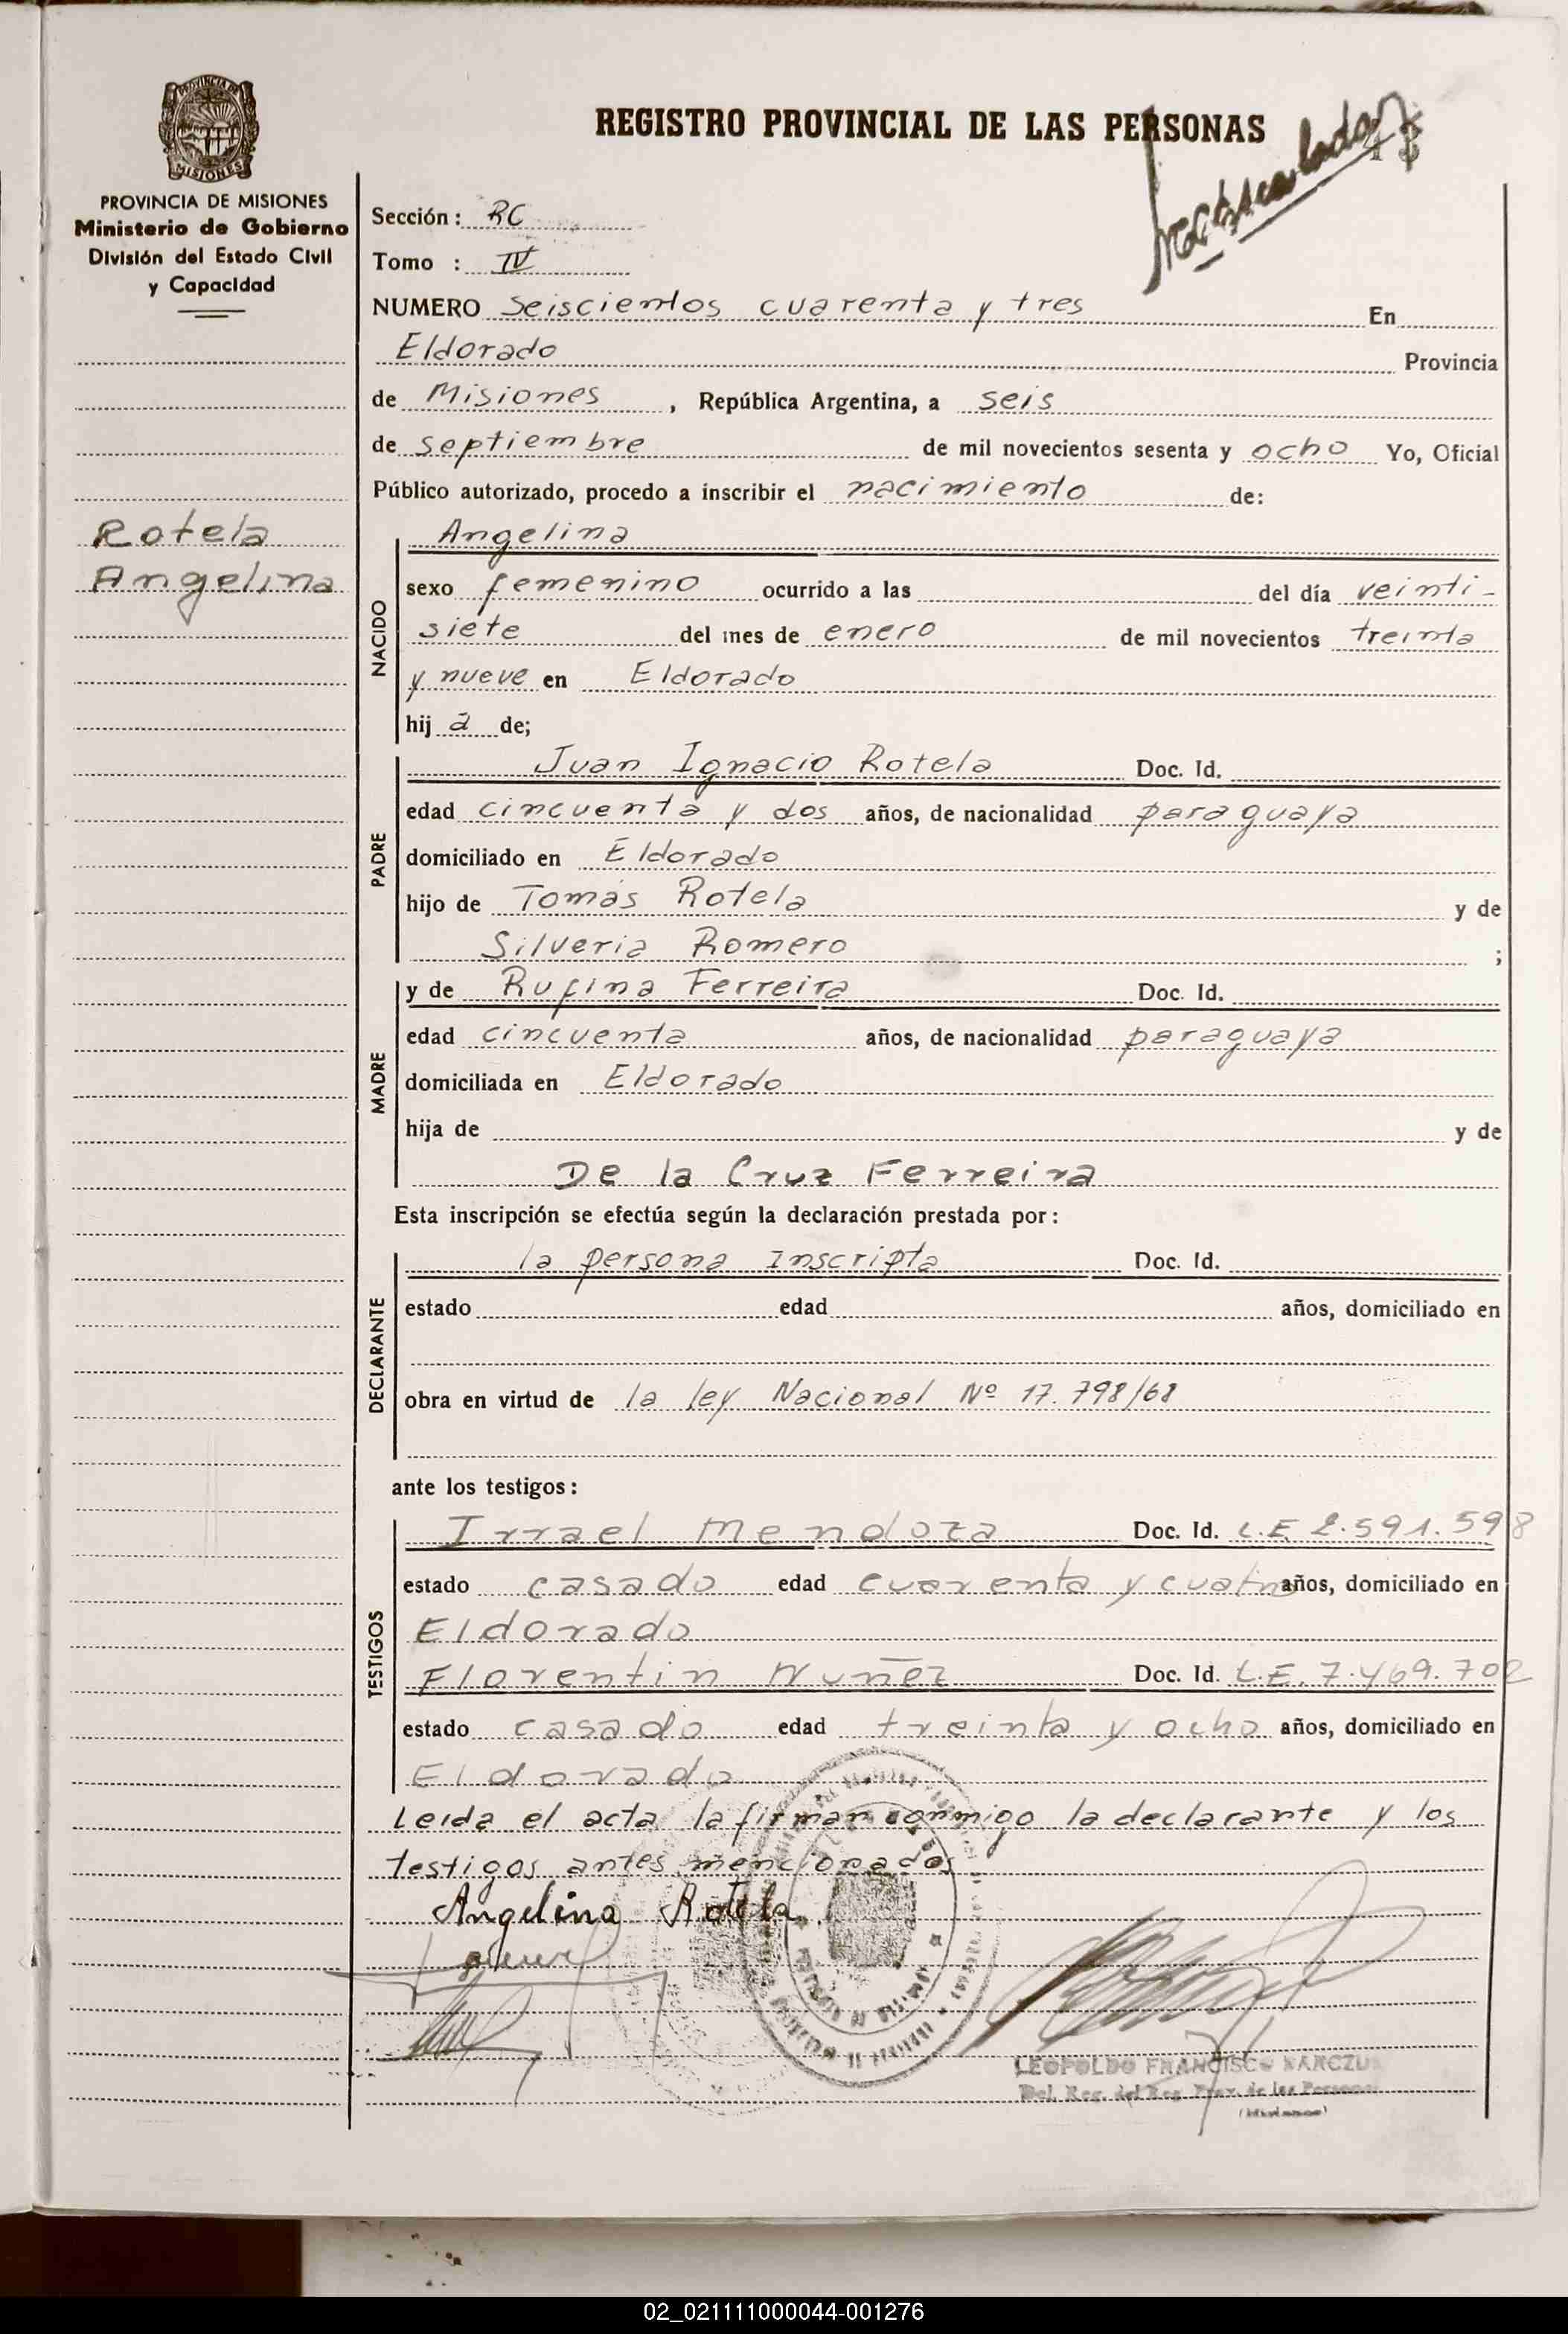 PROVINCIA DE MISIONES
Ministerio de Gobierno
División del Estado Civil
y Capacidad
Rotela
Angelina
REGISTRO PROVINCIAL DE LAS PERSONAS
Sección: RC
Tomo : IV
NUMERO Seiscientos cuarenta y tres En
Eldorado Provincia
de Misiones, República Argentina, a seis
de septiembre de mil novecientos sesenta y ocho Yo, Oficial
Público autorizado, procedo a inscribir el nacimiento de:
NACIDO
Angelina
sexo femenino ocurrido a las del día veinti-
siete del mes de enero de mil novecientos treinta
y nueve en Eldorado
hij a de;
PADRE
Juan Ignacio Rotela Doc. Id.
edad cincuenta y dos años, de nacionalidad paraguaya
domiciliado en Eldorado
hijo de Tomás Rotela y de
Silveria Romero ;
MADRE
y de Rufina Ferreira Doc. Id.
edad cincuenta años, de nacionalidad paraguaya
domiciliada en Eldorado
hija de y de
De la Cruz Ferreira
Esta inscripción se efectúa según la declaración prestada por:
DECLARANTE
la persona Inscripta Doc. Id.
estado edad años, domiciliado en
obra en virtud de la ley Nacional Nº 17.798/68
ante los testigos:
TESTIGOS
Irrael Mendoza Doc. Id. L.E 2.591.598
estado casado edad cuarenta y cuatro años, domiciliado en
Eldorado
Florentin Nuñez Doc. Id. L.E. 7.469.702
estado casado edad treinta y ocho años, domiciliado en
Eldorado
Leida el acta la firman conmigo la declarante y los
testigos antes mencionados
Angelina Rotela
LEOPOLDO FRANCISCO
02_021111000044-001276